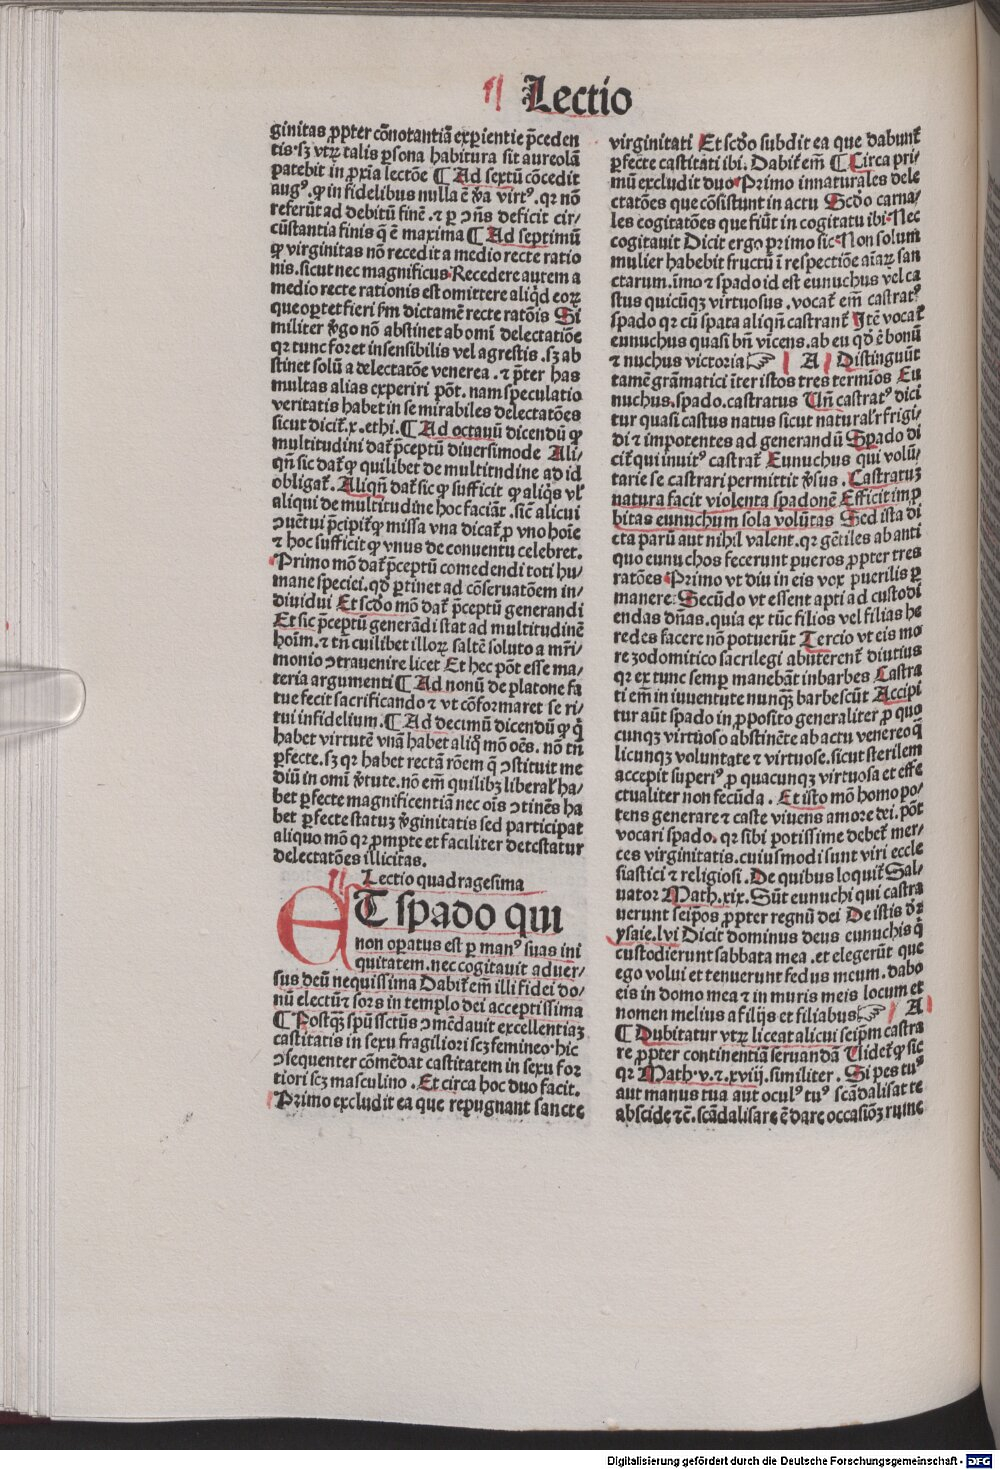 Lectio
ginitas ꝓpter cōnotantiā exꝑientie p̄ceden
tis. sꝫ vtꝝ talis ꝑsona habitura sit aureolā
patebit in ꝓxīa lectōe ¶ Ad sextū cōcedit
augꝰ. ꝙ in fidelibus nulla ē v̄a virtꝰ. qꝛ nō
referūt ad debitū finē. ⁊ ꝑ ↄn̄s deficit cir⸗
cūstantia finis q̄ ē maxima ¶ Ad septimū
ꝙ virginitas nō recedit a medio recte ratio
nis. sicut nec magnificus Recedere autem a
medio recte rationis est omittere aliqͥd eoꝝ
que oꝑtet fieri ẜm dictamē recte ratōis Si
militer v̄go nō abstinet ab omī delectatiōe
qꝛ tunc foret insensibilis vel agrestis. sꝫ ab
stinet solū a delectatōe venerea. ⁊ p̄ter has
multas alias experiri pōt. nam speculatio
veritatis habet in se mirabiles delectatōes
sicut dicit̄. x. ethi. ¶ Ad octauū dicendū ꝙ
multitudini dat̄ p̄ceptū diuersimode Ali⸗
qn̄ sic dat̄ ꝙ quilibet de multitndine ad id
obligat̄. Aliqn̄ dat̄ sic ꝙ sufficit ꝙ aliqͥs vl̓
aliqui de multitudine hoc faciāt. sic̄ alicui
ↄuētui p̄cipit̄ ꝙ missa vna dicat̄ ꝑ vno hoīe
⁊ hoc sufficit ꝙ vnus de conuentu celebret.
Primo mō dat̄ p̄ceptū comedendi toti hu⸗
mane speciei. qd̓ ꝑtinet ad cōseruatōem in⸗
diuidui Et scd̓o mō dat̄ p̄ceptū generandi
Et sic p̄ceptū generādi stat ad multitudinē
hoīm. ⁊ tn̄ cuilibet illoꝝ saltē soluto a mr̄i⸗
monio ↄtrauenire licet Et hec pōt esse ma⸗
teria argumenti ¶ Ad nonū de platone fa
tue fecit sacrificando ⁊ vt cōformaret se ri⸗
tui infidelium. ¶ Ad decimū dicendū ꝙ qͥ
habet virtutē vnā habet aliqͦ mō oēs. nō tn̄
ꝑfecte. sꝫ qꝛ habet rectā rōem q̄ ↄstituit me
diū in omī v̄tute. nō em̄ quilibꝫ liberal̓ ha⸗
bet ꝑfecte magnificentiā nec oīs ↄtinēs ha
bet ꝑfecte statuꝫ v̄ginitatis sed participat
aliquo mō qꝛ ꝓmpte et faciliter detestatur
delectatōes illicitas.
Lectio quadragesima
ET spado qui
non oꝑatus est ꝑ manꝰ suas ini
quitatem. nec cogitauit aduer⸗
sus deū nequissima Dabit̄ em̄ illi fidei do⸗
nū electū ⁊ sors in templo dei acceptissima
¶ Postqꝫ̄ spūssctūs ↄmēdauit excellentiaꝫ
castitatis in sexu fragiliori scꝫ femineo. hic
ↄsequenter cōmēdat castitatem in sexu for
tiori scꝫ masculino. Et circa hoc duo facit.
Primo excludit ea que repugnant sancte
virginitati Et scd̓o subdit ea que dabunt̄
ꝑfecte castitati ibi. Dabit̄ em̄ ¶ Circa pri⸗
mū excludit duo Primo innaturales dele
ctatōes que cōsistunt in actu Scd̓o carna⸗
les cogitatōes que fiūt in cogitatu ibi. Nec
cogitauit Dicit ergo primo sic. Non solum
mulier habebit fructū ī respectiōe aīaꝝ san
ctarum. īmo ⁊ spado id est eunuchus vel ca
stus quicūqꝫ virtuosus. vocat̄ em̄ castratꝰ
spado qꝛ cū spata aliqn̄ castrant̄ Itē vocat̄
eunuchus quasi bn̄ vicens. ab eu qd̓ ē bonū
⁊ nuchus victoria ☞ A Distinguūt
tamē grāmatici īter istos tres termīos Eu
nuchus. spado. castratus Un̄ castratꝰ dici
tur quasi castus natus sicut natural̓r frigi⸗
di ⁊ impotentes ad generandū Spado di
cit̄ qui inuitꝰ castrat̄ Eunuchus qui volū⸗
tarie se castrari permittit v̓sus. Castratuꝫ
natura facit violenta spadonē Efficit imꝓ
bitas eunuchum sola volūtas Sed ista di
cta parū aut nihil valent. qꝛ gētiles ab anti
quo eunuchos fecerunt pueros ꝓpter tres
ratōes Primo vt diu in eis vox puerilis ꝑ
manere. Secūdo vt essent apti ad custodi
endas dn̄as. quia ex tūc filios vel filias he
redes facere nō potuerūt Tercio vt eis mo
re zodomitico sacrilegi abuterent̄ diutius
qꝛ ex tunc semꝑ manebāt inbarbes Castra
ti em̄ in iuuentute nunqꝫ̄ barbescūt Accipi
tur aūt spado in ꝓposito generaliter ꝓ quo
cunqꝫ virtuoso abstinēte ab actu venereo q̄
licunqꝫ voluntate ⁊ virtuose. sicut sterilem
accepit superiꝰ ꝓ quacunqꝫ virtuosa et effe
ctualiter non fecūda. Et isto mō homo po⸗
tens generare ⁊ caste viuens amore dei. pōt
vocari spado. qꝛ sibi potissime debet̄ mer⸗
ces virginitatis. cuiusmodi sunt viri eccle
siastici ⁊ religiosi. De quibus loquit̄ Sal⸗
uator Math. xix. Sūt eunuchi qui castra
uerunt seip̄os ꝓpter regnū dei De istis d̓r
ysaie. lvi Dicit dominus deus eunuchis qͥ
custodierunt sabbata mea. et elegerūt que
ego volui et tenuerunt fedus meum. dabo
eis in domo mea ⁊ in muris meis locum et
nomen melius a filijs et filiabus ☞ A
¶ Dubitatur vtꝝ liceat alicui seip̄m castra
re ꝓpter continentiā seruandā Uidet̄ ꝙ sic
qꝛ Math. v. ⁊. xviij. similiter. Si pes tuꝰ
aut manus tua aut oculꝰ tuꝰ scādalisat te
abscide ⁊c̄. scādalisare ē dare occasiōꝫ ruine
Digitalisierung gefördert durch die Deutsche Forschungsgemeinschaft - DFG